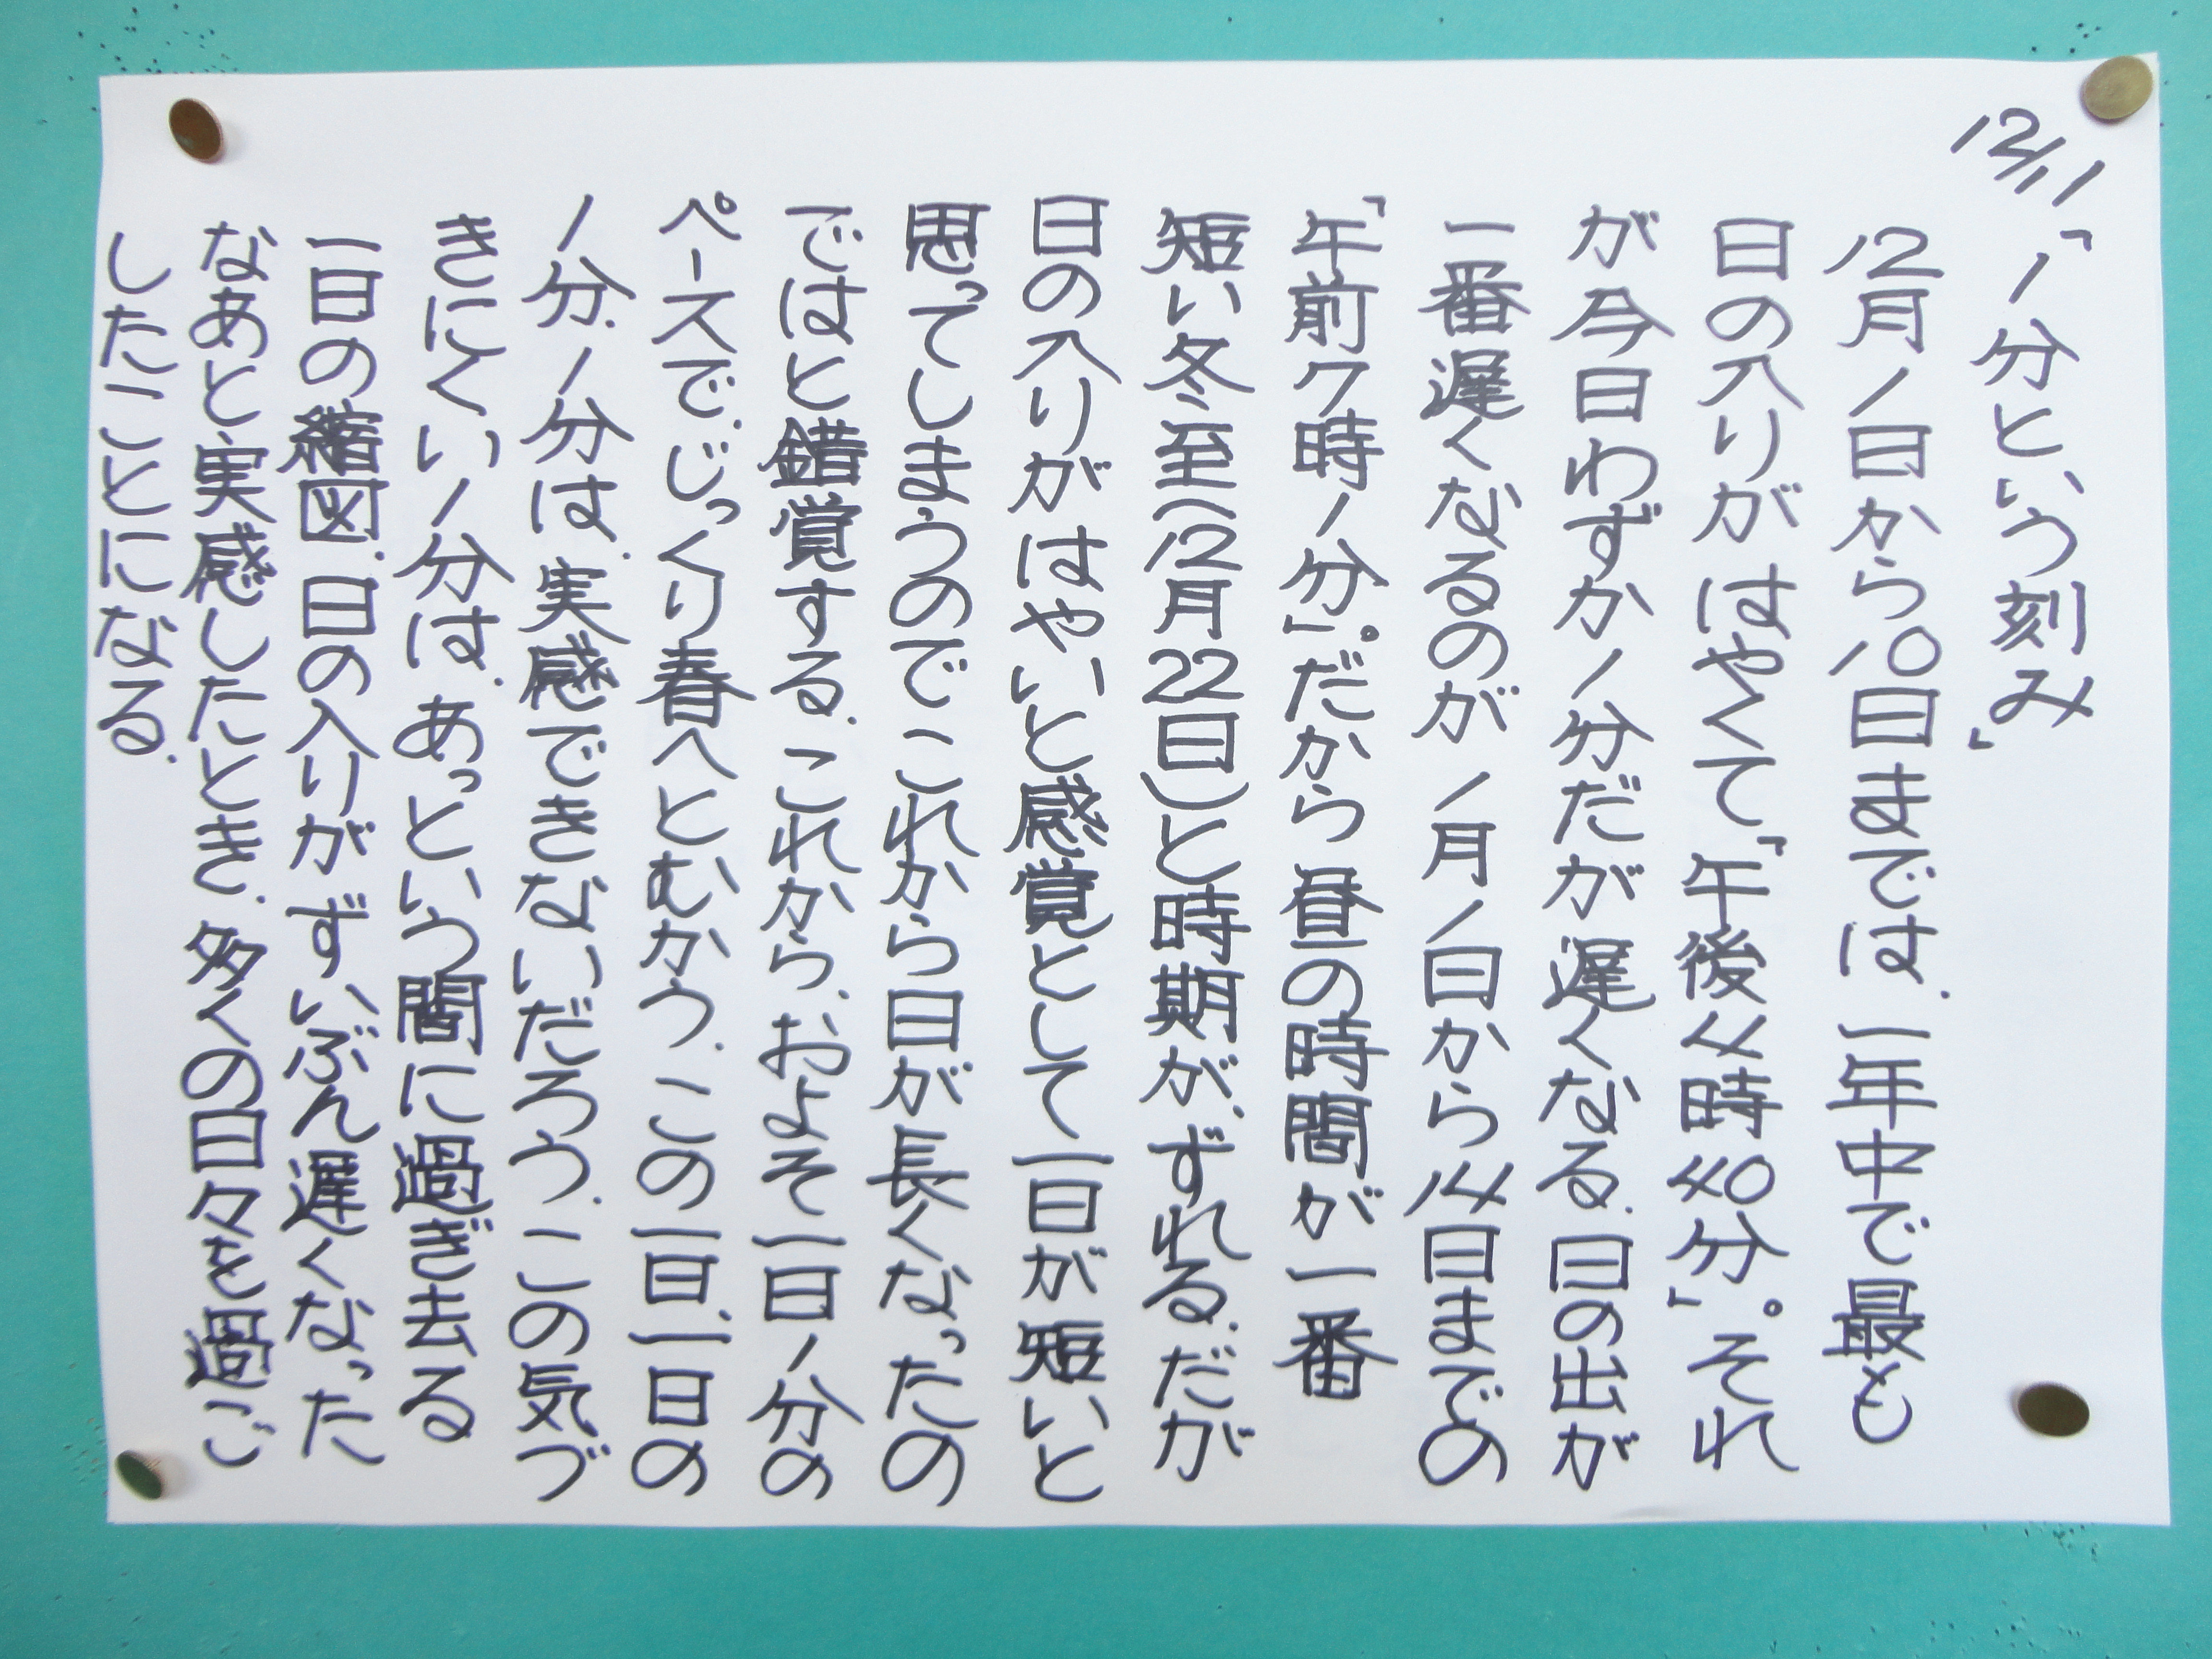 12/11
「1分という刻み」
12月1日から10日までは、一年中で最も
日の入りがはやくて「午後4時40分」。それ
が今日わずか1分だが遅くなる。日の出が
一番遅くなるのが1月1日から14日までの
「午前7時1分」。だから昼の時間が一番
短い冬至(12月22日)と時期が、ずれる。だが
日の入りがはやいと感覚として一日が短いと
思ってしまうのでこれから日が長くなったの
ではと錯覚する。これから、およそ一日1分の
ペースで、じっくり春へとむかう。この一日、一日の
1分、1分は、実感できないだろう。この気づ
きにくい1分は、あっという間に過ぎ去る
一日の縮図。日の入りがずいぶん遅くなった
なあと実感したとき、多くの日々を過ご
したことになる。